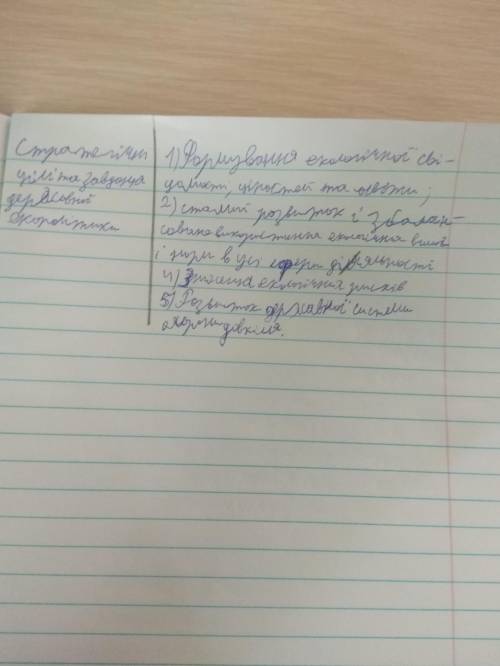 Стратегічні
цілі та завдання
державної
екополітики
1) Формування екологічної сві-
домості, цінностей та освіти;
2) сталий розвиток і збалан-
соване використання екологічна
і норм в усі сфери діяльності
4) Зниження екологічних ризиків
5) Розвиток державної системи
охорони довкілля.